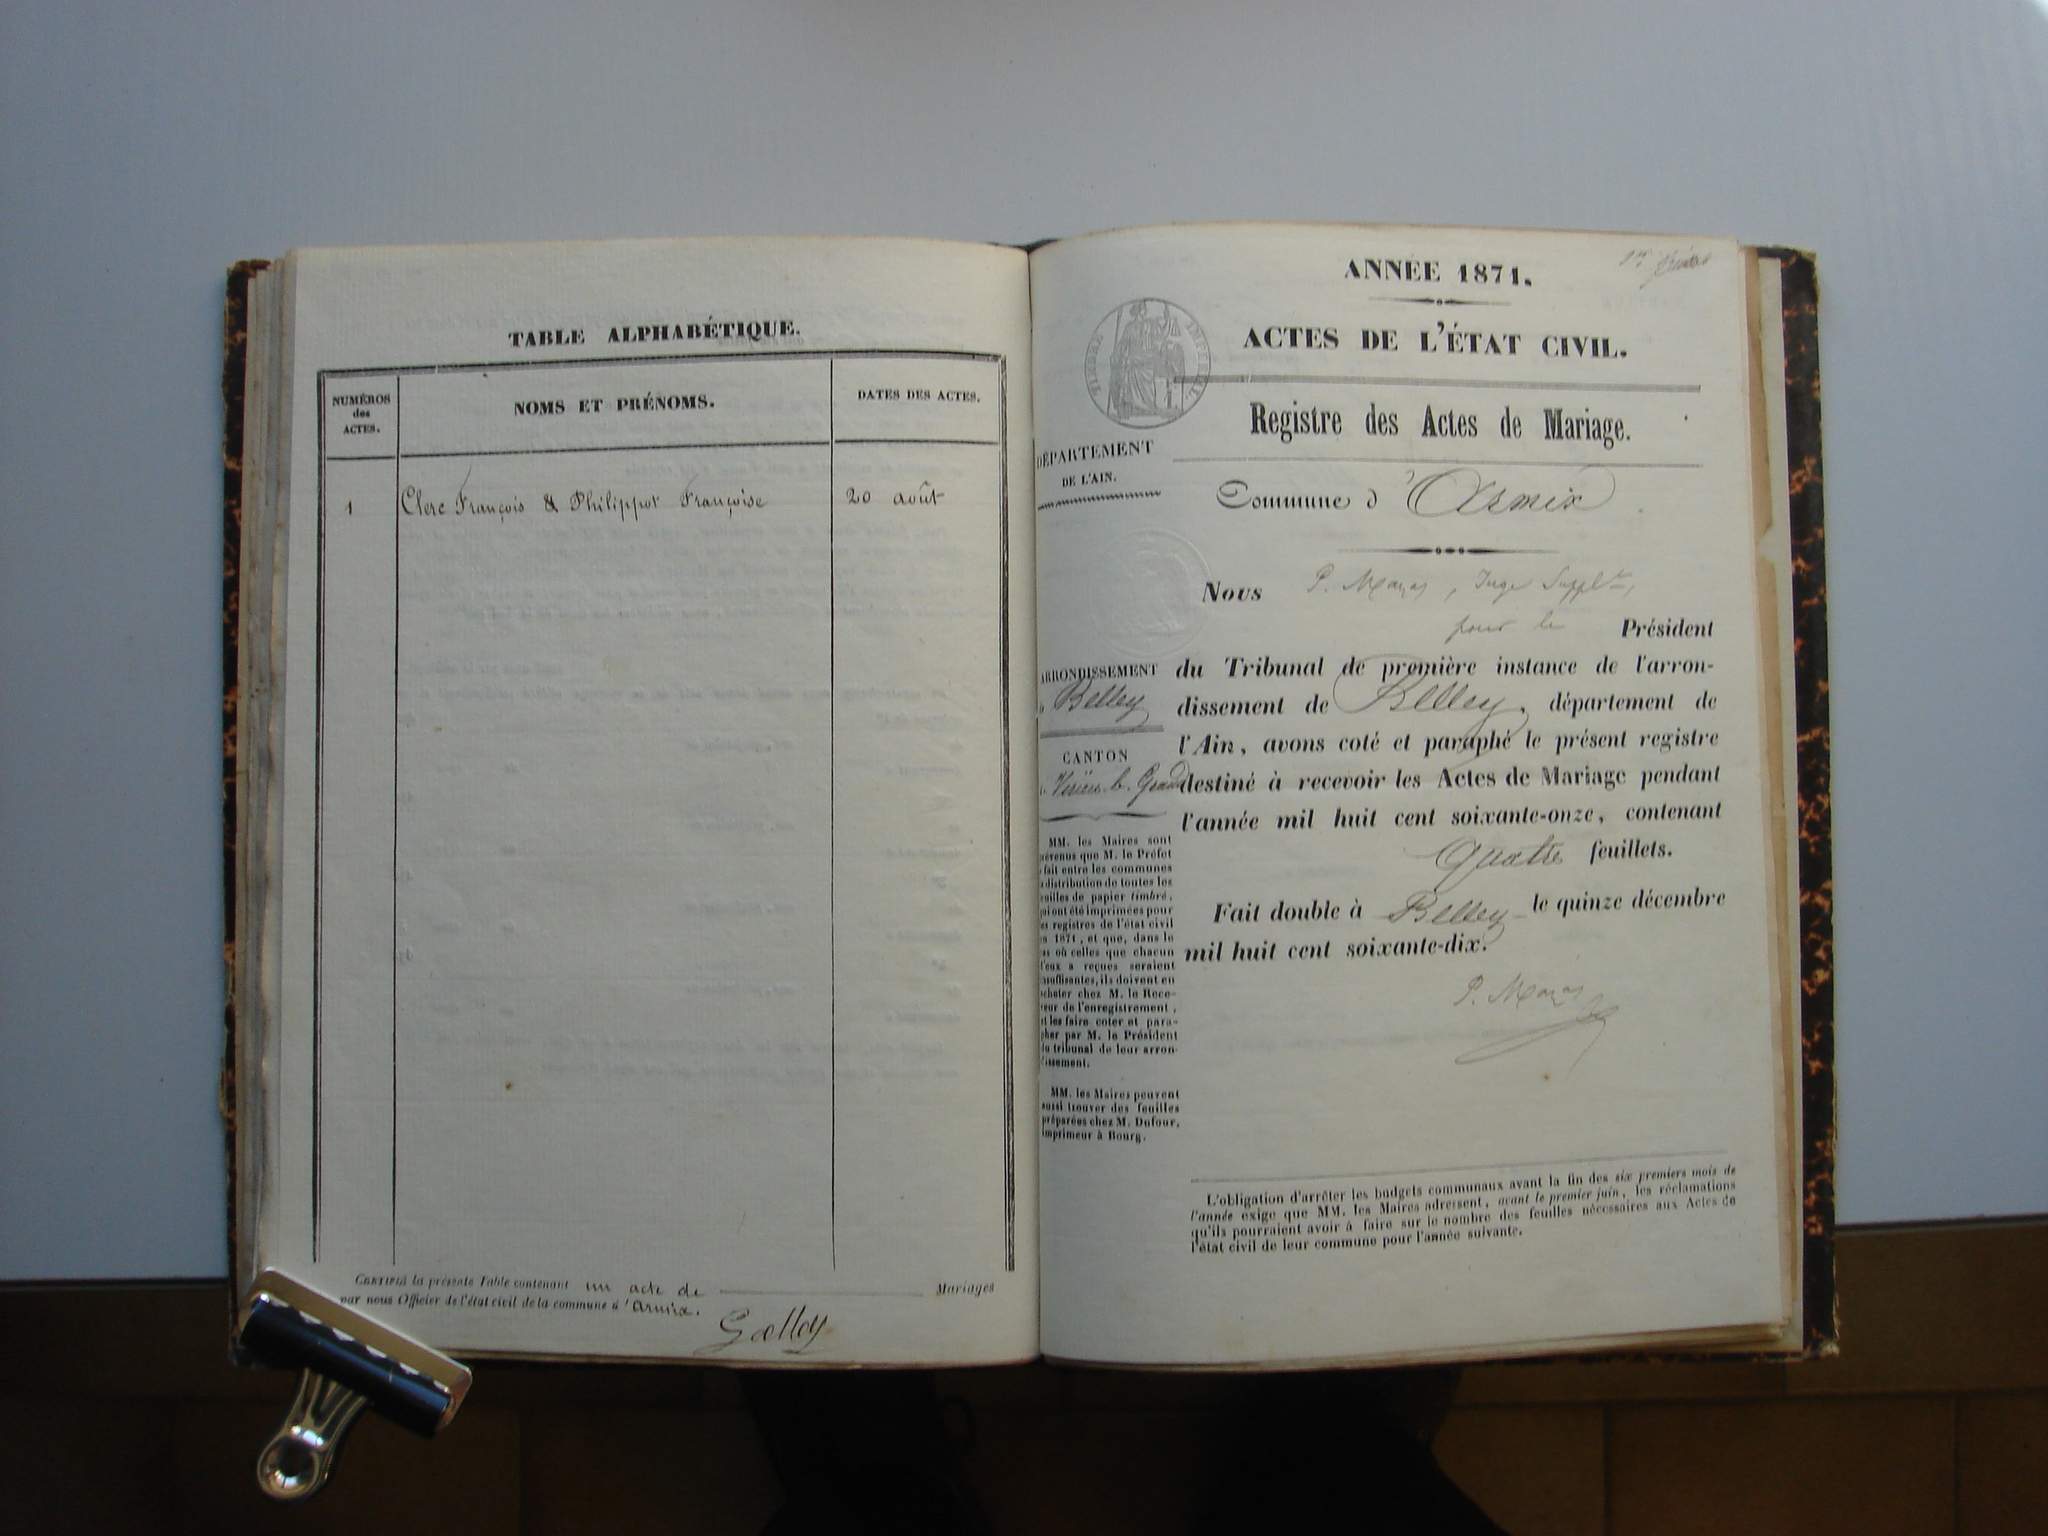 TABLE ALPHABÉTIQUE.
NUMÉROS
des
ACTES.
NOMS ET PRÉNOMS.
DATES DES ACTES.
1
Clerc François & Philippot Françoise
20 août
CERTIFIÉ la présente Table contenant un acte de Mariages
par nous Officier de l'état civil de la commune d'Armix.
ANNÉE 1871.
ACTES DE L'ÉTAT CIVIL.
TIMBRE IMPÉRIAL
Registre des Actes de Mariage.
DÉPARTEMENT
DE L'AIN.
Commune d'Armix
Nous P. Mazas, Juge Supplt,
pour le Président
du Tribunal de première instance de l'arron-
dissement de Belley, département de
l'Ain, avons coté et paraphé le présent registre
destiné à recevoir les Actes de Mariage pendant
l'année mil huit cent soixante-onze, contenant
Quatre feuillets.
Fait double à Belley le quinze décembre
mil huit cent soixante-dix.
P. Mazas
ARRONDISSEMENT
Belley
CANTON
Virieu-le-Grand
MM. les Maires sont
prévenus que M. le Préfet
fait entre les communes
distribution de toutes les
feuilles de papier timbré,
aient été imprimées pour
les registres de l'état civil
1871, et que, dans le
cas où celles que chacun
d'eux a reçues seraient
insuffisantes, ils doivent en
acheter chez M. le Rece-
veur de l'enregistrement,
et les faire coter et para-
pher par M. le Président
du tribunal de leur arron-
dissement.
MM. les Maires peuvent
aussi trouver des feuilles
préparées chez M. Dufour,
imprimeur à Bourg.
L'obligation d'arrêter les budgets communaux avant la fin des six premiers mois de
l'année exige que MM. les Maires adressent, avant le premier juin, les réclamations
qu'ils pourraient avoir à faire sur le nombre des feuilles nécessaires aux Actes de
l'état civil de leur commune pour l'année suivante.